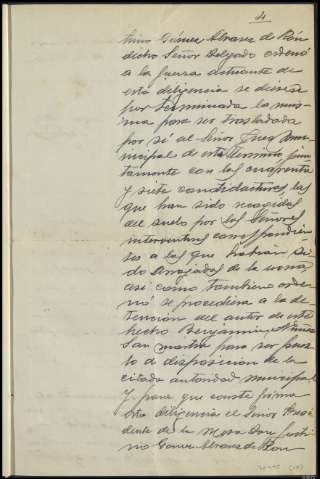 4
tino Gómez Alvarez de Ron
dicho Señor Delgado ordenó
a la fuerza actuante de
esta diligencia se diese
por terminada la mis-
ma para ser trasladada
por sí al Señor Juez Mu-
nicipal de este término jun-
tamente con las cuarenta
y siete candidaturas, las
que han sido recogidas
del suelo por los Señores
interventores
a las que habían si-
do arrojadas de la urna,
así como tambien orde-
nó se procediera a la de-
tención del autor de este
hecho Benjamin
San Martin para ser pues-
to a disposición de la
citada autoridad municipal
Y para que conste firma
esta diligencia el Señor Presi-
dente de la Mesa Don Justi-
no Gómez Alvarez de Ron